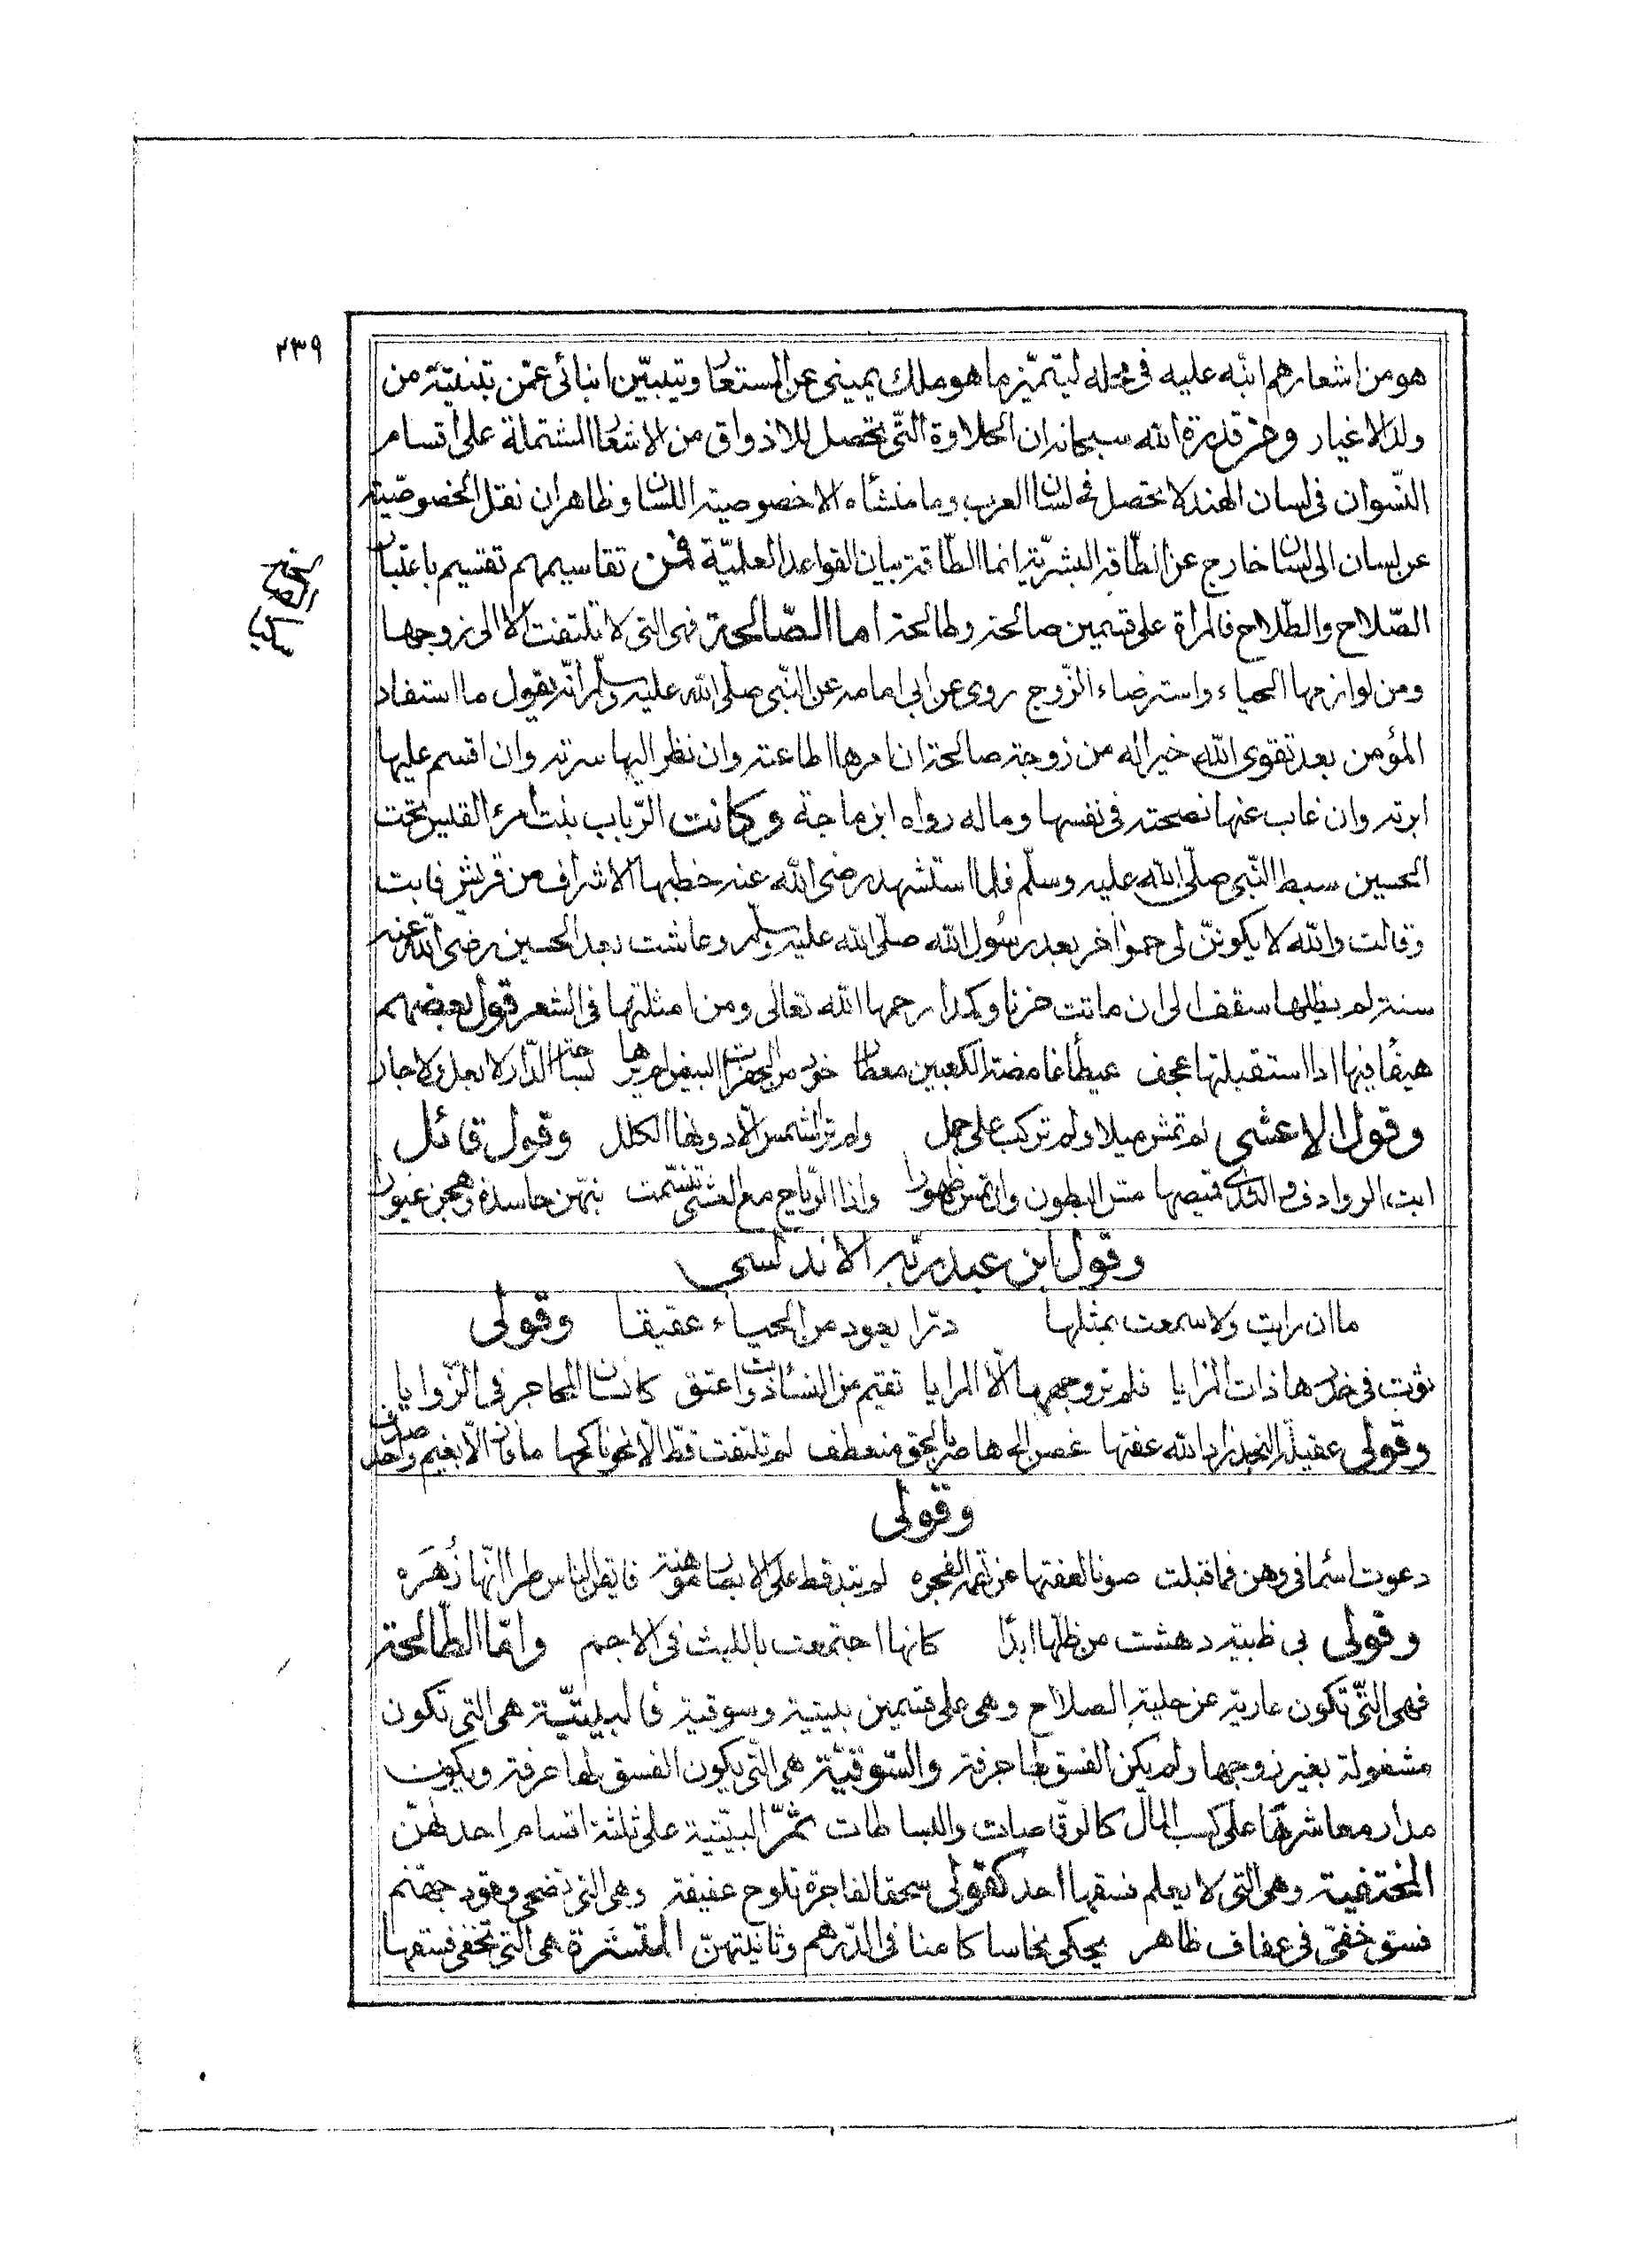 ٢٣٩
هو من اشعارهم انبه عليه فى محله ليتميّز ما هو ملك يمينى عن المستعار ويتبيّن ابنائى عمّن تبنيته من
ولد الاغيار ومن قدرة الله سبحانه ان الحلاوة التّى تحصل للاذواق من الاشعار المشتملة على اقسام
النّسوان فى لسان الهند لا تحصل فى لسان العرب وما منشاه الا خصوصية اللسان وظاهر ان نقل الخصوصّية
عن لسان الى لسان خارج عن الطّاقة البشرّية انما الطّاقة بيان القواعد العلميّة فمن تقاسيمهم تقسيم باعتبار
الصّلاح والطّلاح فالمرأة على قسمين صالحة وطالحة اما الصّالحة فهى التى لا تلتفت الا الى زوجها
ومن لوازمها الحياء واسترضاء الزّوج روى عن ابى امامه عن النّبى صلّى الله عليه وسلّم انّه يقول ما استفاد
المؤمن بعد تقوى الله خيرا له من زوجة صالحة ان امرها اطاعته وان نظر اليها سرته وان اقسم عليها
ابرته وان غاب عنها نصحته فى نفسها وماله رواه ابن ماجة وكانت الرّباب بنت امرء القيس تحت
الحسين سبط النّبى صلّى الله عليه وسلّم فلما استشهد رضى الله عنه خطبها الاشراف من قريش فابت
وقالت والله لا يكوننّ لى حموا اخر بعد رسُول الله صلّى الله عليه وسلّم وعاشت بعد الحسين رضى الله عنه
سنة لم يظلها سقف الى ان ماتت حزنا وكمدا رحمها الله تعالى ومن امثلتها فى الشعر قول بعضهم
هيفًا فيها اذا استقبلتها عجف عيطًا غامضة الكعبين معطار خود من الخفرات البيض لم يرها بساحة الدّار لا بعل ولا جار
وقول الاعشى لم تمش ميلا ولم تركب على جمل ولم تر الشمس الّا دونها الكلل وقول قائل
ابت الروادف والثدى لقميصها مسّ البطون وان تمس ظهورا واذا الرّياح مع العشى تنسّمت نبهن حاسدة وهجن غيورا
وقول ابن عبد ربّه الاندلسى
ما ان رايت ولا سمعت بمثلها درّا يعود من الحياء عقيقا وقولى
ثوبت فى خدرها ذات المزايا فلم تر وجهها الّا المرايا تقيم من النساء ذوات عتق كانسان المحاجر فى الزّوايا
وقولى عقيلة النجد زاد الله عفتها غصن الى هاصر بالحق منعطف لم تلتفت قطّ الّا نحو ناكحها ما فان الّا بغيم واحد صدف
وقولى
دعوت اسما فى وهن فما قبلت صونا لعفتها عن تهمة الفجره لم تبد قط على الابصار موهنة فايقن الناس طرا انّها زُهَره
وقولى بى ظبية دهشت من ظلّها ابدًا كانها اجتمعت بالليث فى الاجم وامّا الطّالحة
فهى التّى تكون عارية عن حلية الصلاح وهى على قسمين بيتية وسوقية فالبيتيّة هى التى تكون
مشغولة بغير زوجها ولم يكن الفسق لها حرفة والسّوقيّة هى التّى يكون الفسق لها حرفة ويكون
مدار معاشرتها على كسب المال كالرقّاصات واللساطات ثمّ البيّتية على ثلثة اقسام احدٰهنّ
المختفية وهى التى لا يعلم فسقها احد كقولى سحقا لفاجرة تلوح عفيفة وهى التى تضحى وقود جهنّم
فسق خفىّ فى عفاف ظاهر يحكى نحاسا كامنا فى الدّرهم وثانيتهنّ المتسترة هى التى تخفى فسقها